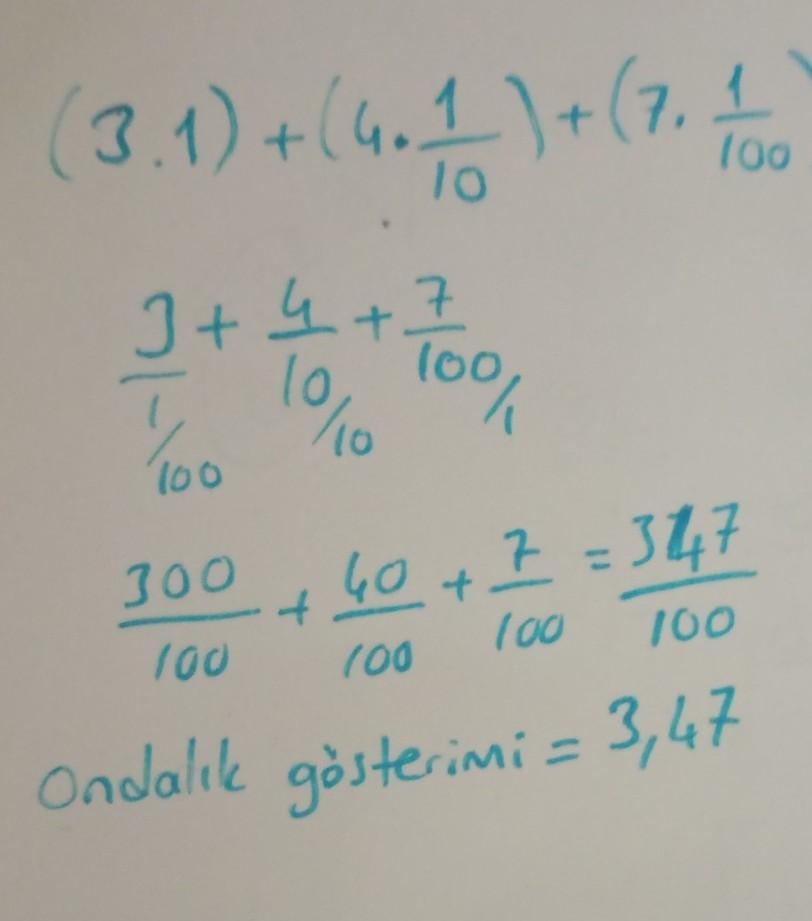 (3.1)+(4.1/10)+(7.1/100)
3/1/100 + 4/10/10 + 7/100/1
300/100 + 40/100 + 7/100 = 347/100
Ondalık gösterimi = 3,47